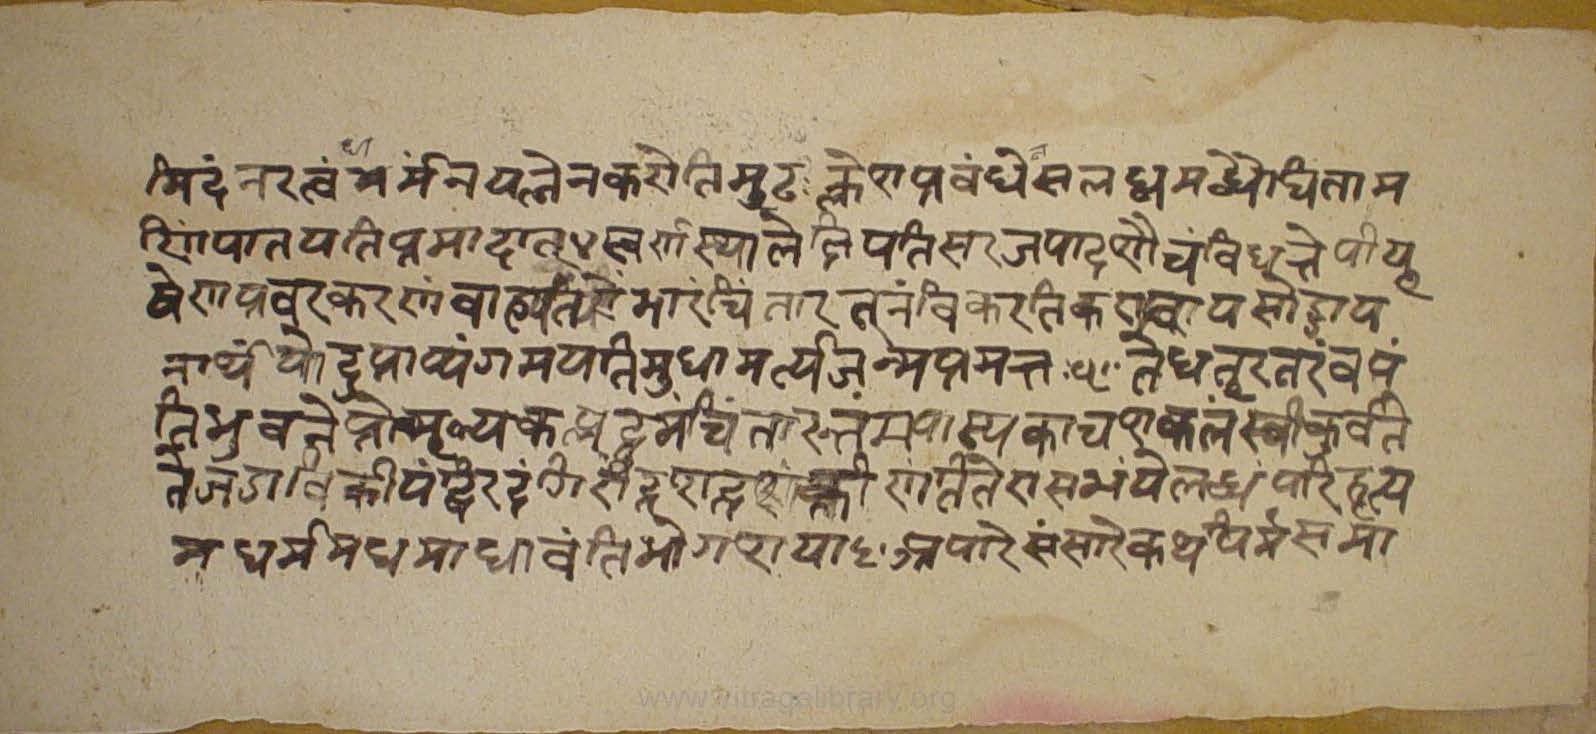 मिदं नरत्वं धर्मं न यत्नेन करोति मुढः क्लेशप्रबंधेन स लब्धमब्धौ चिंताम
णिं पातयति प्रमादात् ४ स्वर्णस्थाले क्षिपति स रजः पादशौचं विधत्ते पीयू
षेण प्रवरकरिणं वाहयति भारं चिंतारत्नं विकरति कराद्वाय सोड्डाय
नार्थं यो दुःप्राप्यं गमयति मुधा मर्त्यजन्म प्रमत्तः ५ ते धत्तूरतरुं वपं
ति भुवने प्रोन्मूल्य कल्पद्रुमं चिंतारत्नमपास्य काचशकलं स्वीकुर्वते
ते जडा विक्रीय द्विरदं गिरींद्रशदृशं क्रीणंति ते रासभं ये लब्धं परिहृत्य
मधर्ममधमा धावंति भोगाशया ६ अपारे संसारे कथमपि समा
www.vitragalibrary.org